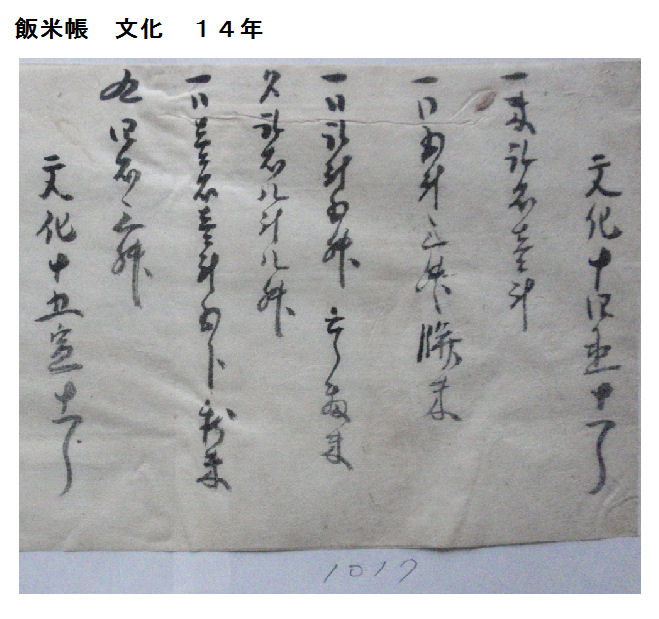 飯米帳　文化　１４年
文化十四丑十一月
一米弐石壱斗
一同五斗三升 米
一同弐斗五升 米
〆弐石八斗八升
一同壱石壱斗五升 新米
四石三升
文化十五寅十一月
1017